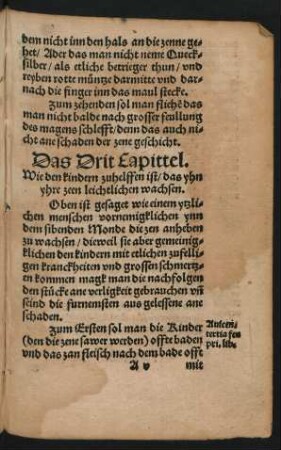 dem nicht inn den hals an die zenne ge-
het/ Ader das man nicht neme Queck-
silber/ als etliche betrieger thun/ vnd
reyben rotte müntze darmitte vnd dar-
nach die finger inn das maul stecke.
Zum zehenden sol man fliehē das
man nicht balde nach grosser feullung
des magens schlefft/ denn das auch ni-
cht ane schaden der zene geschicht.
Das Drit Capittel.
Wie den kindern zuhelffen ist/ das yhn
yhre zeen leichtlichen wachsen.
Oben ist gesaget wie einem ytzli-
chen menschen vornemigklichen ynn
dem sibenden Monde die zen anheben
zu wachsen/ dieweil sie aber gemeinig-
klichen den kindern mit etlichen zufelli-
gen kranckheiten vnd grossen schmertz-
en kommen magk man die nachfolgen
den stücke ane verligkeit gebrauchen vñ
seind die furnemsten aus gelessene ane
schaden.
Zum Ersten sol man die Kinder
(den die zene sawer werden) offte baden
vnd das zan fleisch nach dem bade offt
Auicen:
tertia fen
pri. lib.
A v
mit